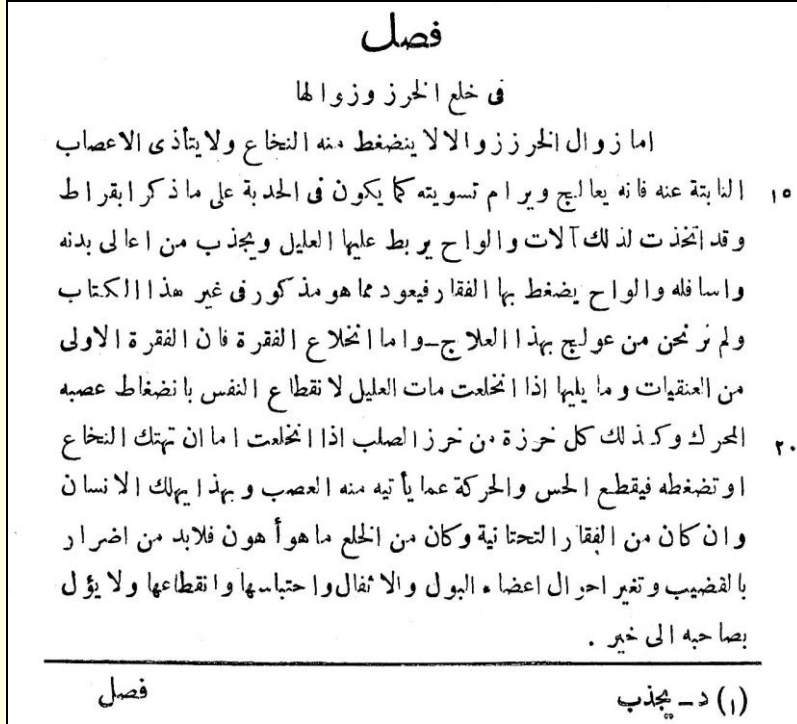 فصل
فى خلع الخرز وزوالها
اما زوال الخرز زوالا لا ينضغط منه النخاع ولا يتأذى الاعصاب
١٥ النابتة عنه فانه يعالج ويرام تسويته كما يكون فى الحدبة على ما ذكر ابقراط
وقد اتخذت لذلك آلات والواح يربط عليها العليل ويجذب من اعالى بدنه
واسافله والواح يضغط بها الفقار فيعود مما هو مذكور فى غير هذا الكتاب
ولم نر نحن من عولج بهذا العلاج ــ واما انخلاع الفقرة فان الفقرة الاولى
من العنقيات وما يليها اذا انخلعت مات العليل لانقطاع النفس بانضغاط عصبه
٢٠ المحرك وكذلك كل خرزة من خرز الصلب اذا انخلعت اما ان تهتك النخاع
او تضغطه فيقطع الحس والحركة عما يأتيه منه العصب وبهذا يهلك الانسان
وان كان من الفقار التحتانية وكان من الخلع ما هو أهون فلابد من اضرار
بالقضيب وتغير احوال اعضاء البول والاثفال واحتباسها وانقطاعها ولا يؤل
بصاحبه الى خير .
(١) د ــ يجذب فصل